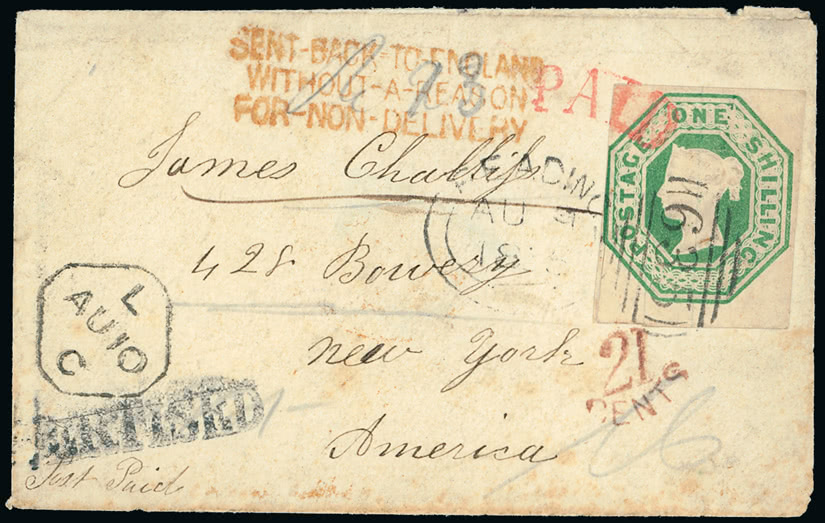 SENT-BACK-TO-ENGLAND
WITHOUT-A-REASON
FOR-NON-DELIVERY
PAID
James Challis
428 Bowery
New York
America
POSTAGE ONE SHILLING
READING
AU
18
L
AU10
C
21
CENTS
Post Paid